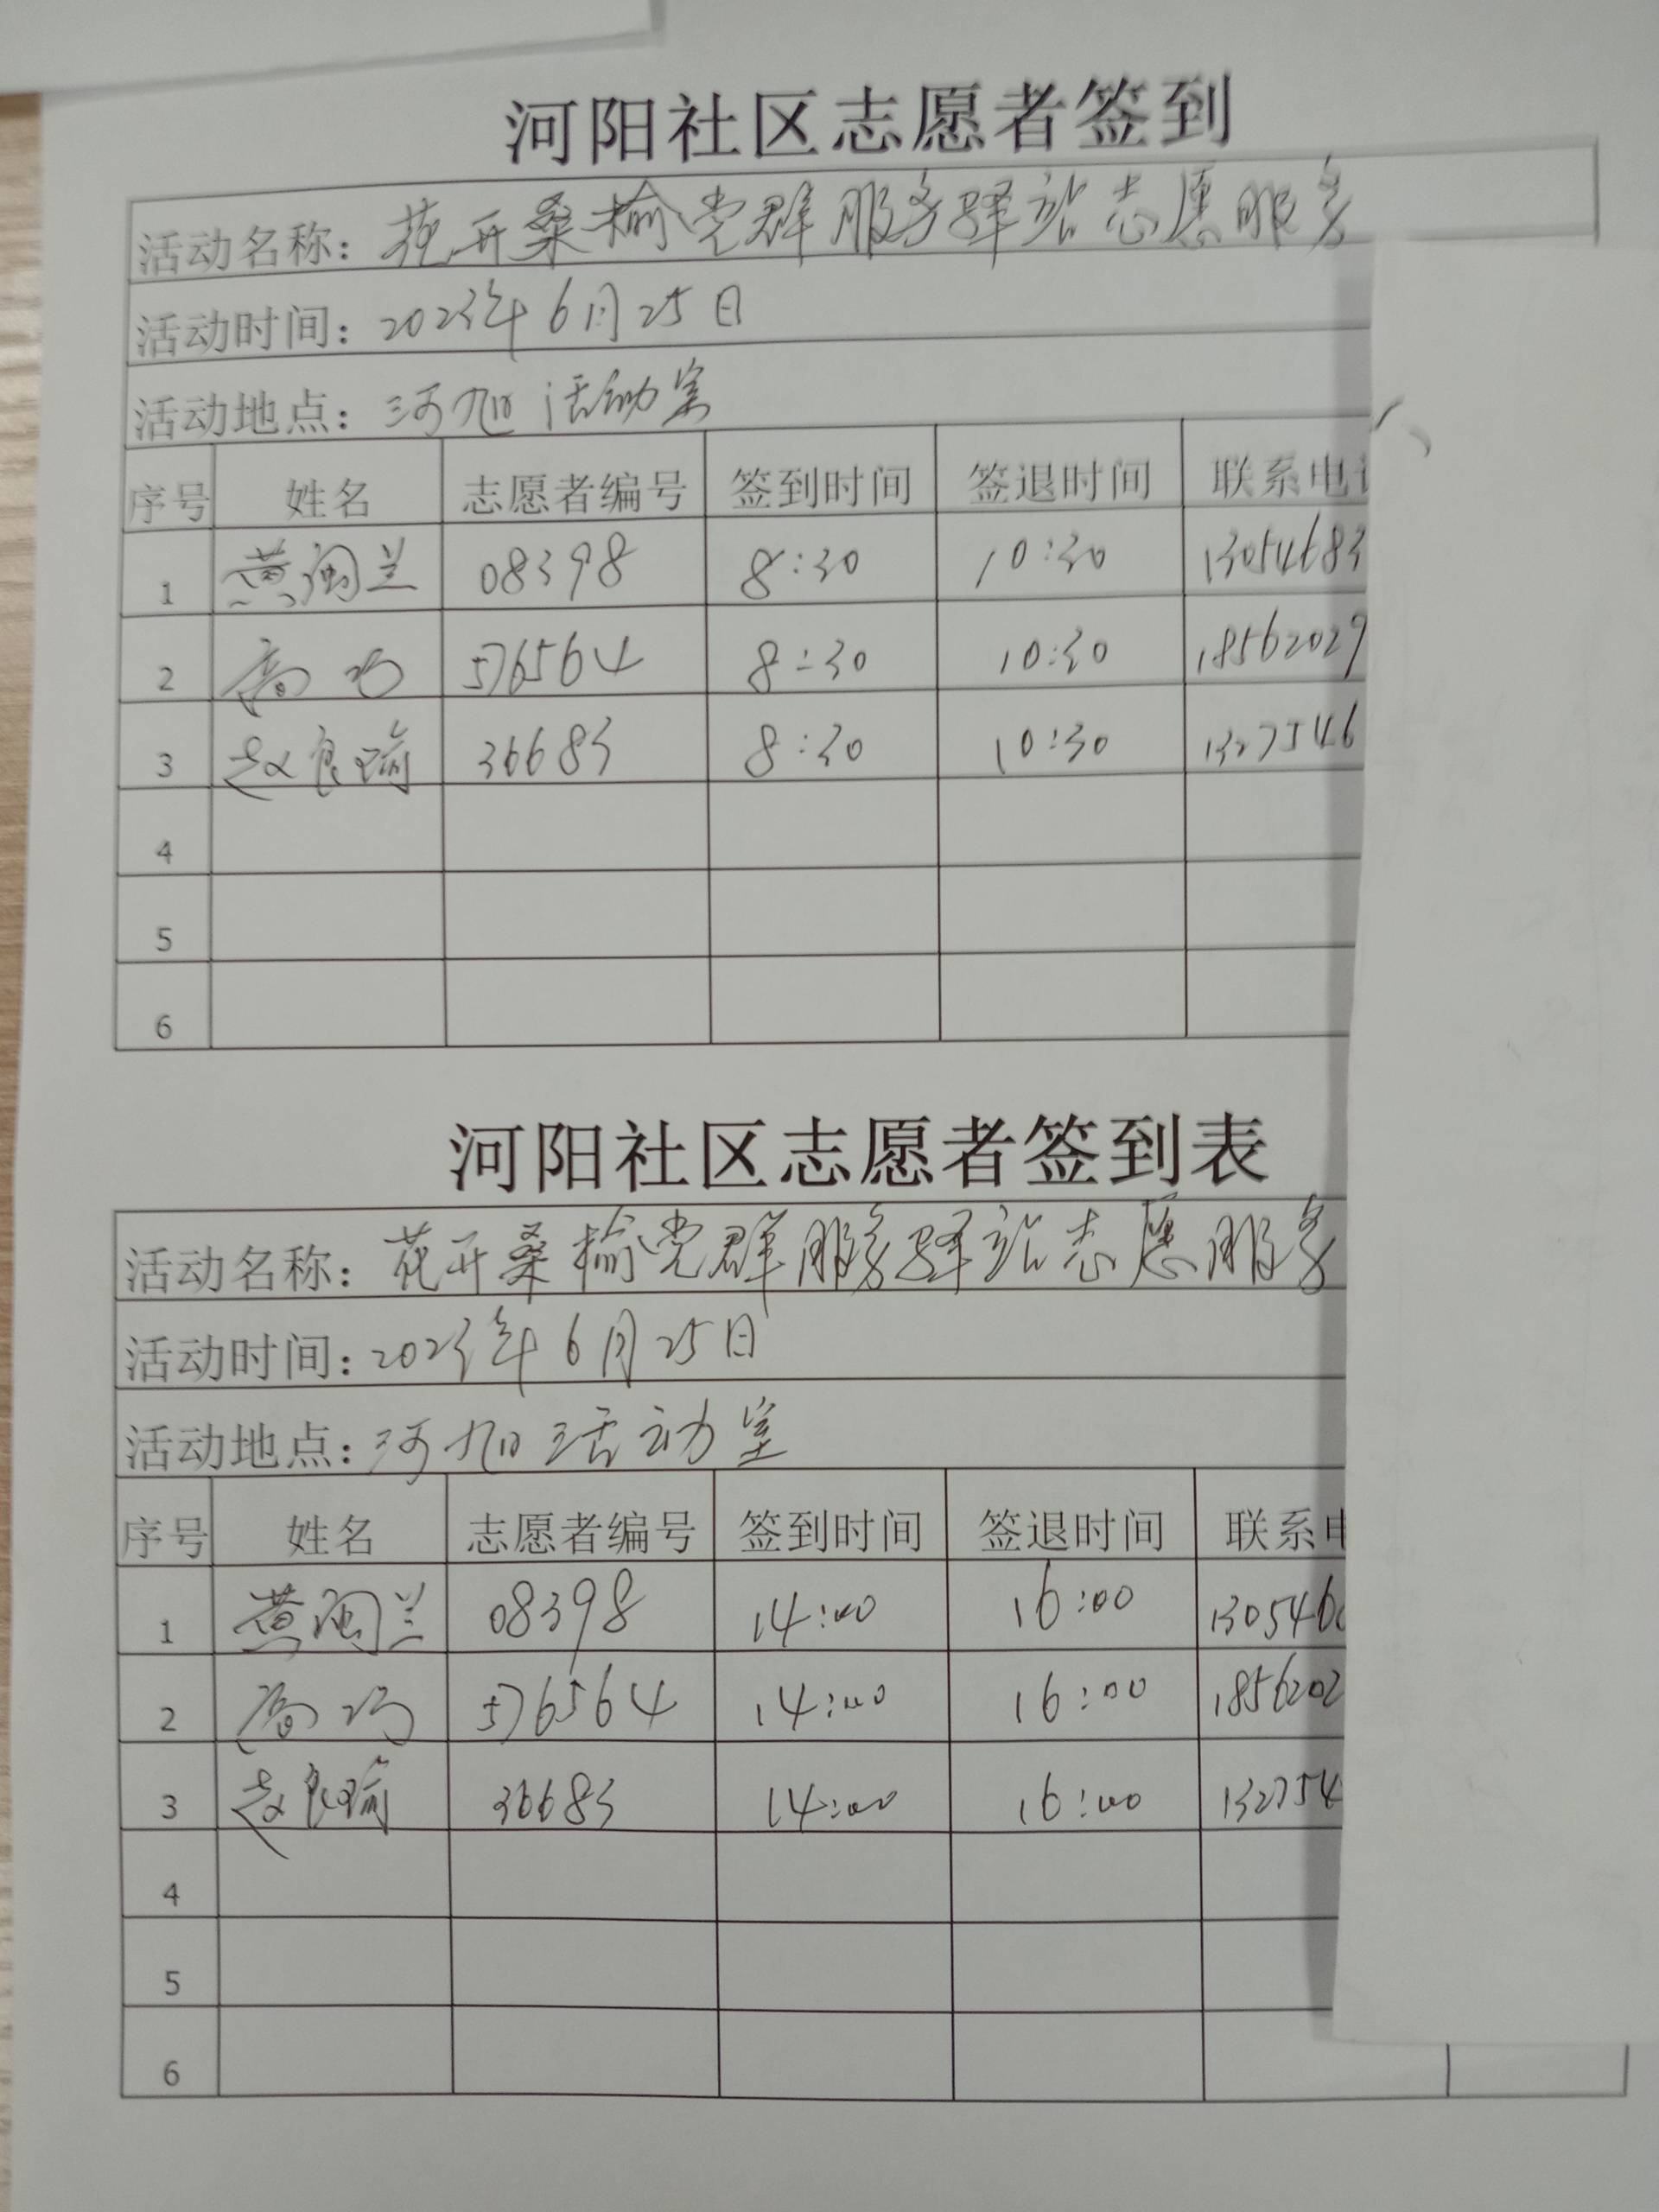 河阳社区志愿者签到
活动名称：花开桑榆党群服务驿站志愿服务
活动时间：2023年6月25日
活动地点：河旭活动室
序号 姓名 志愿者编号 签到时间 签退时间 联系电
1 黄闽兰 08398 8:30 10:30 13054683
2 高巧 576564 8:30 10:30 18562029
3 赵良瑜 36683 8:30 10:30 1327546
4
5
6
河阳社区志愿者签到表
活动名称：花开桑榆党群服务驿站志愿服务
活动时间：2023年6月25日
活动地点：河旭活动室
序号 姓名 志愿者编号 签到时间 签退时间 联系
1 黄闽兰 08398 14:00 16:00 130546
2 高巧 576564 14:00 16:00 1856202
3 赵良瑜 36683 14:00 16:00 132754
4
5
6